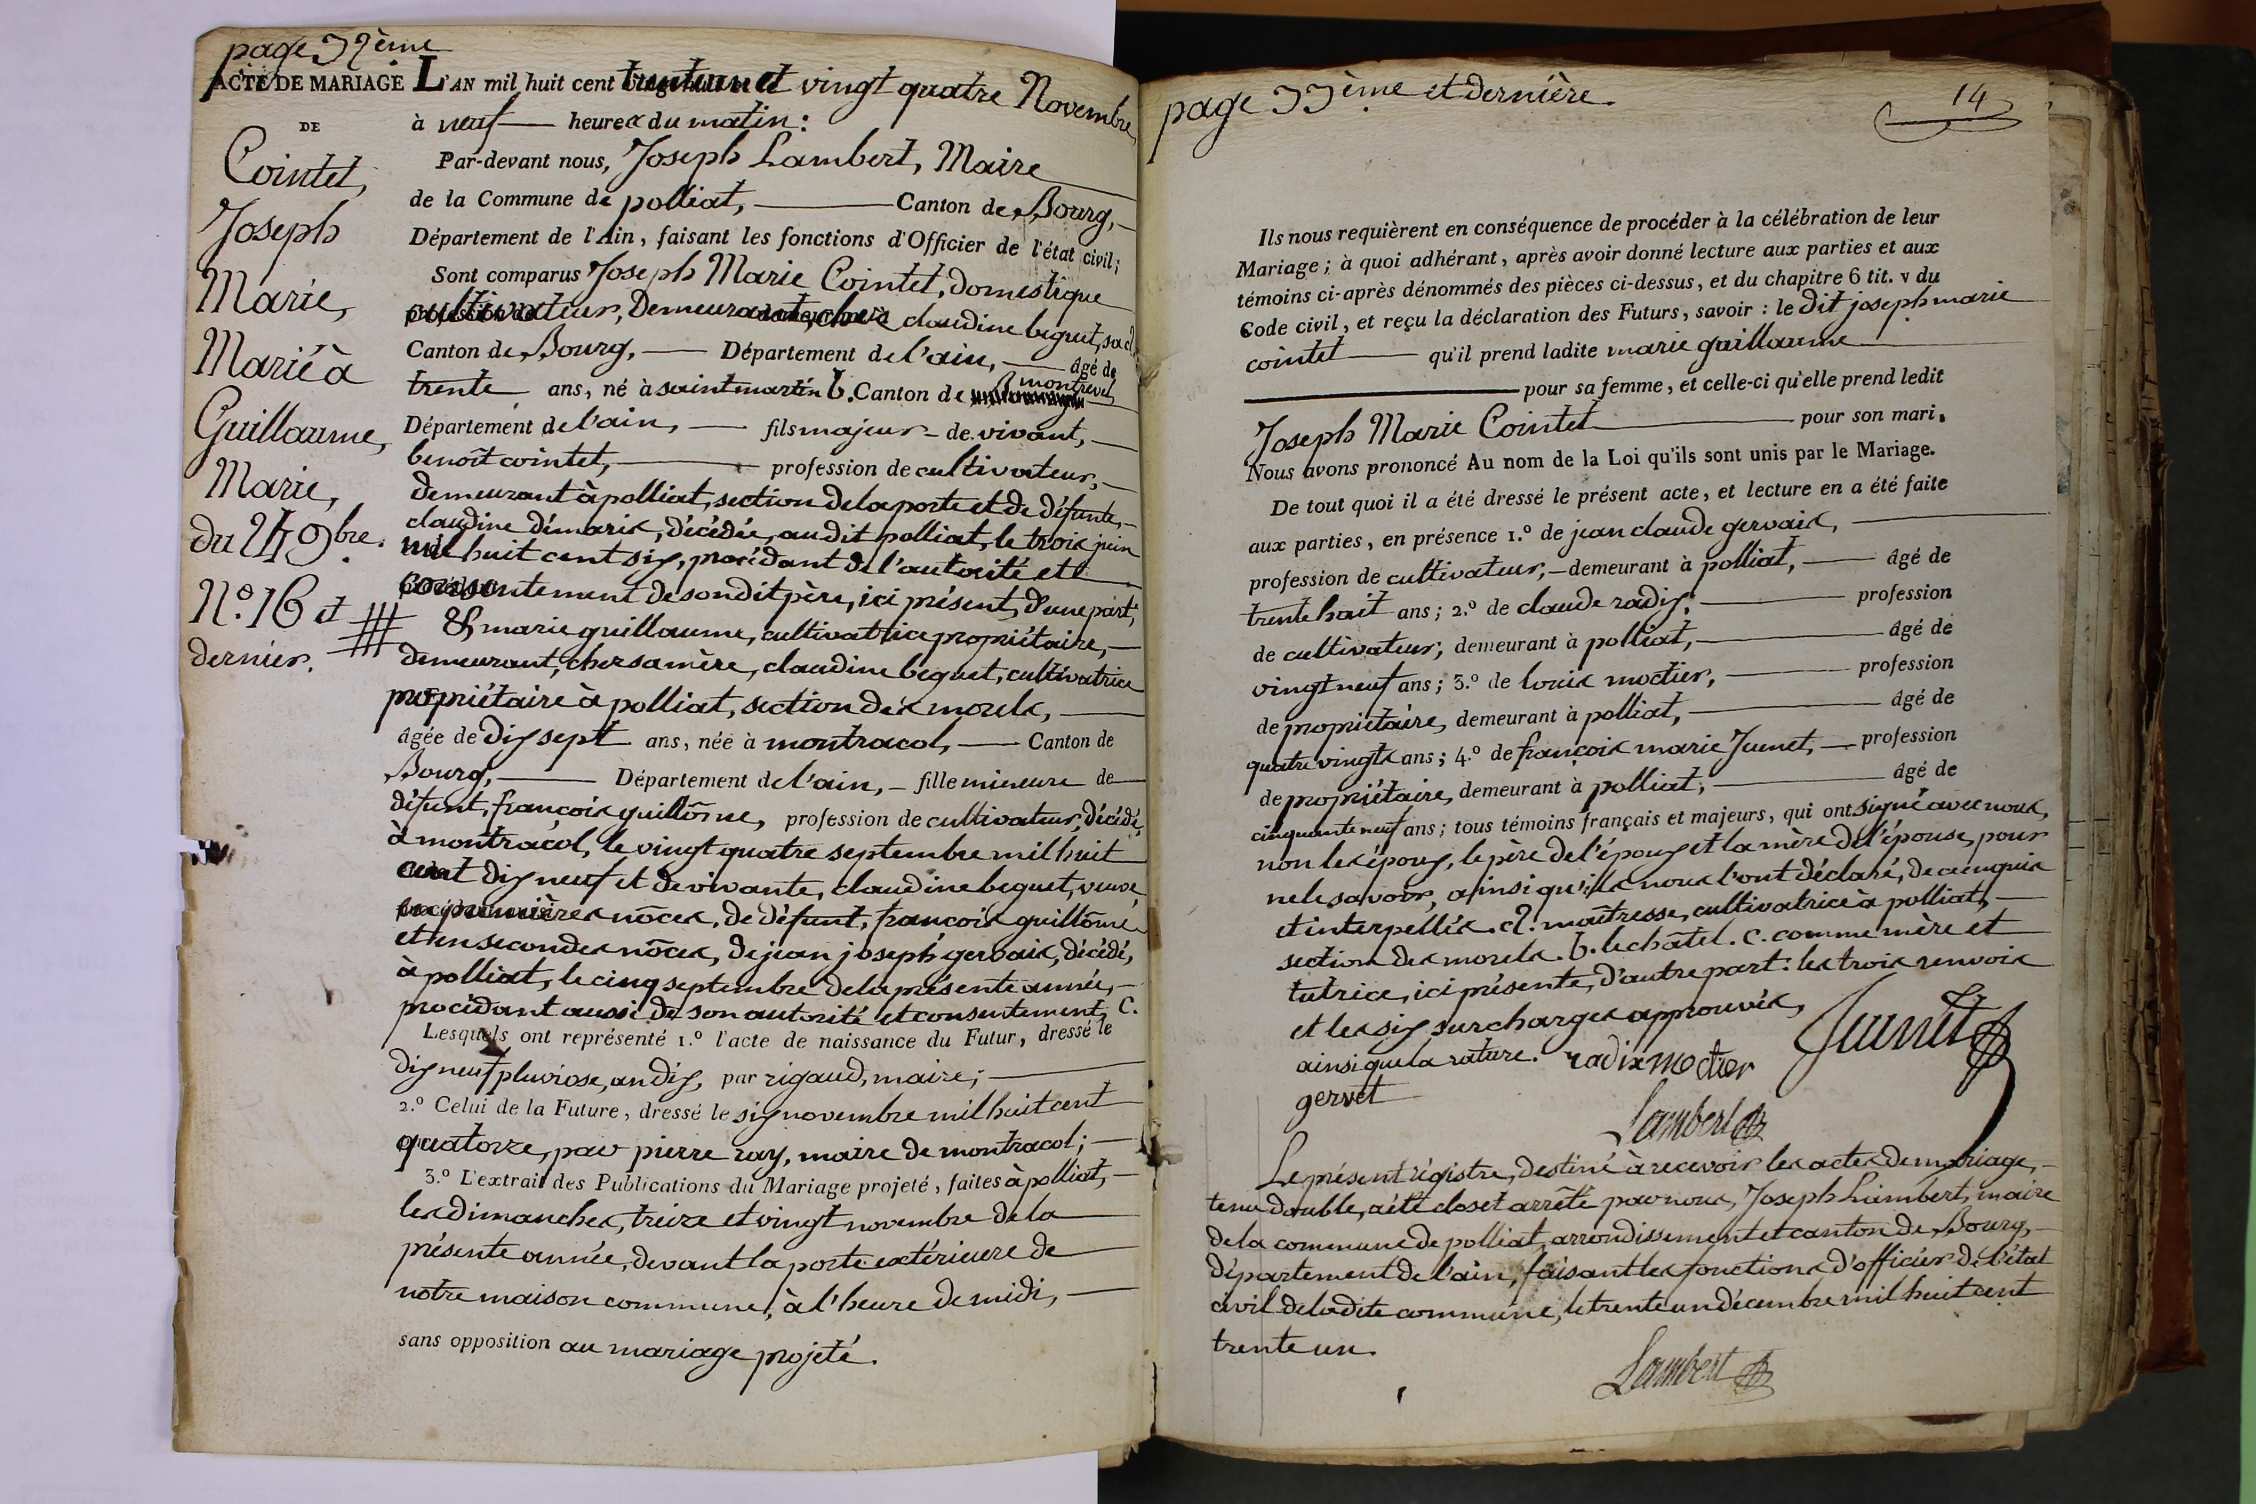 page 32ème
ACTE DE MARIAGE L'AN mil huit cent trente un et vingt quatre Novembre
DE
à neuf heures du matin:
Cointet,
Par-devant nous, Joseph Lambert, Maire
de la Commune de polliat, Canton de Bourg,
Joseph
Département de l'Ain, faisant les fonctions d'Officier de l'état civil;
Marie,
Sont comparus Joseph Marie Cointet, domestique
cultivateur, Demeurant, chez claudine beguet, sa a.
Marié à
Canton de Bourg, Département de l'ain, âgé de
trente ans, né à saint martin b. Canton de montrevel
Guillaume,
Département de l'ain, fils majeur de vivant,
benoît cointet, profession de cultivateur,
Marie,
demeurant à polliat, section de la porte et de défunte,
du 24 9bre.
claudine démaris, décédée, au dit polliat, le trois juin
mil huit cent six, procédant de l'autorité et
N.º 16 et
consentement de son dit père, ici présent, d'une part,
dernier.
Et marie guillaume, cultivatrice propriétaire,
demeurant, chez sa mère, claudine beguet, cultivatrice
propriétaire à polliat, section des mouls,
âgée de dix sept ans, née à montracol, Canton de
Bourg, Département de l'ain, fille mineure de
défunt, françois guillôme, profession de cultivateur, décédé,
à montracol, le vingt quatre septembre mil huit
cent dix neuf et de vivante, claudine beguet, veuve,
en premières nôces, de défunt, françois guillôme
et en secondes nôces, de jean joseph gervais, décédé,
à polliat, le cinq septembre de la présente année,
procédant aussi de son autorité et consentement, C.
Lesquels ont représenté 1.º l'acte de naissance du Futur, dressé le
dix neuf pluviose, an dix, par rigaud, maire;
2.º Celui de la Future, dressé le six novembre mil huit cent
quatorze, par pierre ray, maire de montracol;
3.º L'extrait des Publications du Mariage projeté, faites à polliat,
les dimanches, treize et vingt novembre de la
présente année, devant la porte extérieure de
notre maison commune, à l'heure de midi,
sans opposition au mariage projeté.
page 33ème et dernière.
14
Ils nous requièrent en conséquence de procéder à la célébration de leur
Mariage; à quoi adhérant, après avoir donné lecture aux parties et aux
témoins ci-après dénommés des pièces ci-dessus, et du chapitre 6 tit. v du
Code civil, et reçu la déclaration des Futurs, savoir: le dit joseph marie
cointet qu'il prend ladite marie guillaume
pour sa femme, et celle-ci qu'elle prend ledit
Joseph Marie Cointet pour son mari,
Nous avons prononcé Au nom de la Loi qu'ils sont unis par le Mariage.
De tout quoi il a été dressé le présent acte, et lecture en a été faite
aux parties, en présence 1.º de jean claude gervais,
profession de cultivateur, demeurant à polliat, âgé de
trente huit ans; 2.º de claude radix, profession
de cultivateur, demeurant à polliat, âgé de
vingt neuf ans; 3.º de louis moctier, profession
de propriétaire, demeurant à polliat, âgé de
quatre vingts ans; 4.º de françois marie Juenet, profession
de propriétaire, demeurant à polliat, âgé de
cinquante neuf ans; tous témoins français et majeurs, qui ont signé avec nous,
non les époux, le père de l'époux et la mère de l'épouse, pour
ne le savoir, ainsi qu'ils nous l'ont déclaré, de ce enquis
et interpellés. a. maîtresse, cultivatrice à polliat,
section des mouls. b. le châtel. c. comme mère et
tutrice, ici présente, d'autre part: les trois renvois
et les six surcharges approuvés,
ainsi que la rature. radix moctier Juenet
gervet
Lambert
Le présent régistre, destiné à recevoir les actes de mariage,
tenu double, a été clos et arrêté par nous, Joseph Lambert, maire
de la commune de polliat, arrondissement et canton de Bourg,
département de l'ain, faisant les fonctions d'officier de l'état
civil de la dite commune, le trente un décembre mil huit cent
trente un.
Lambert